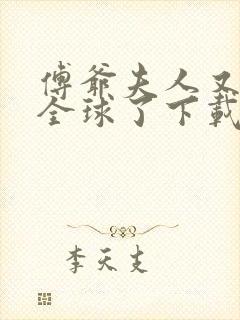 傅爺夫人又
全球了下載
李天支